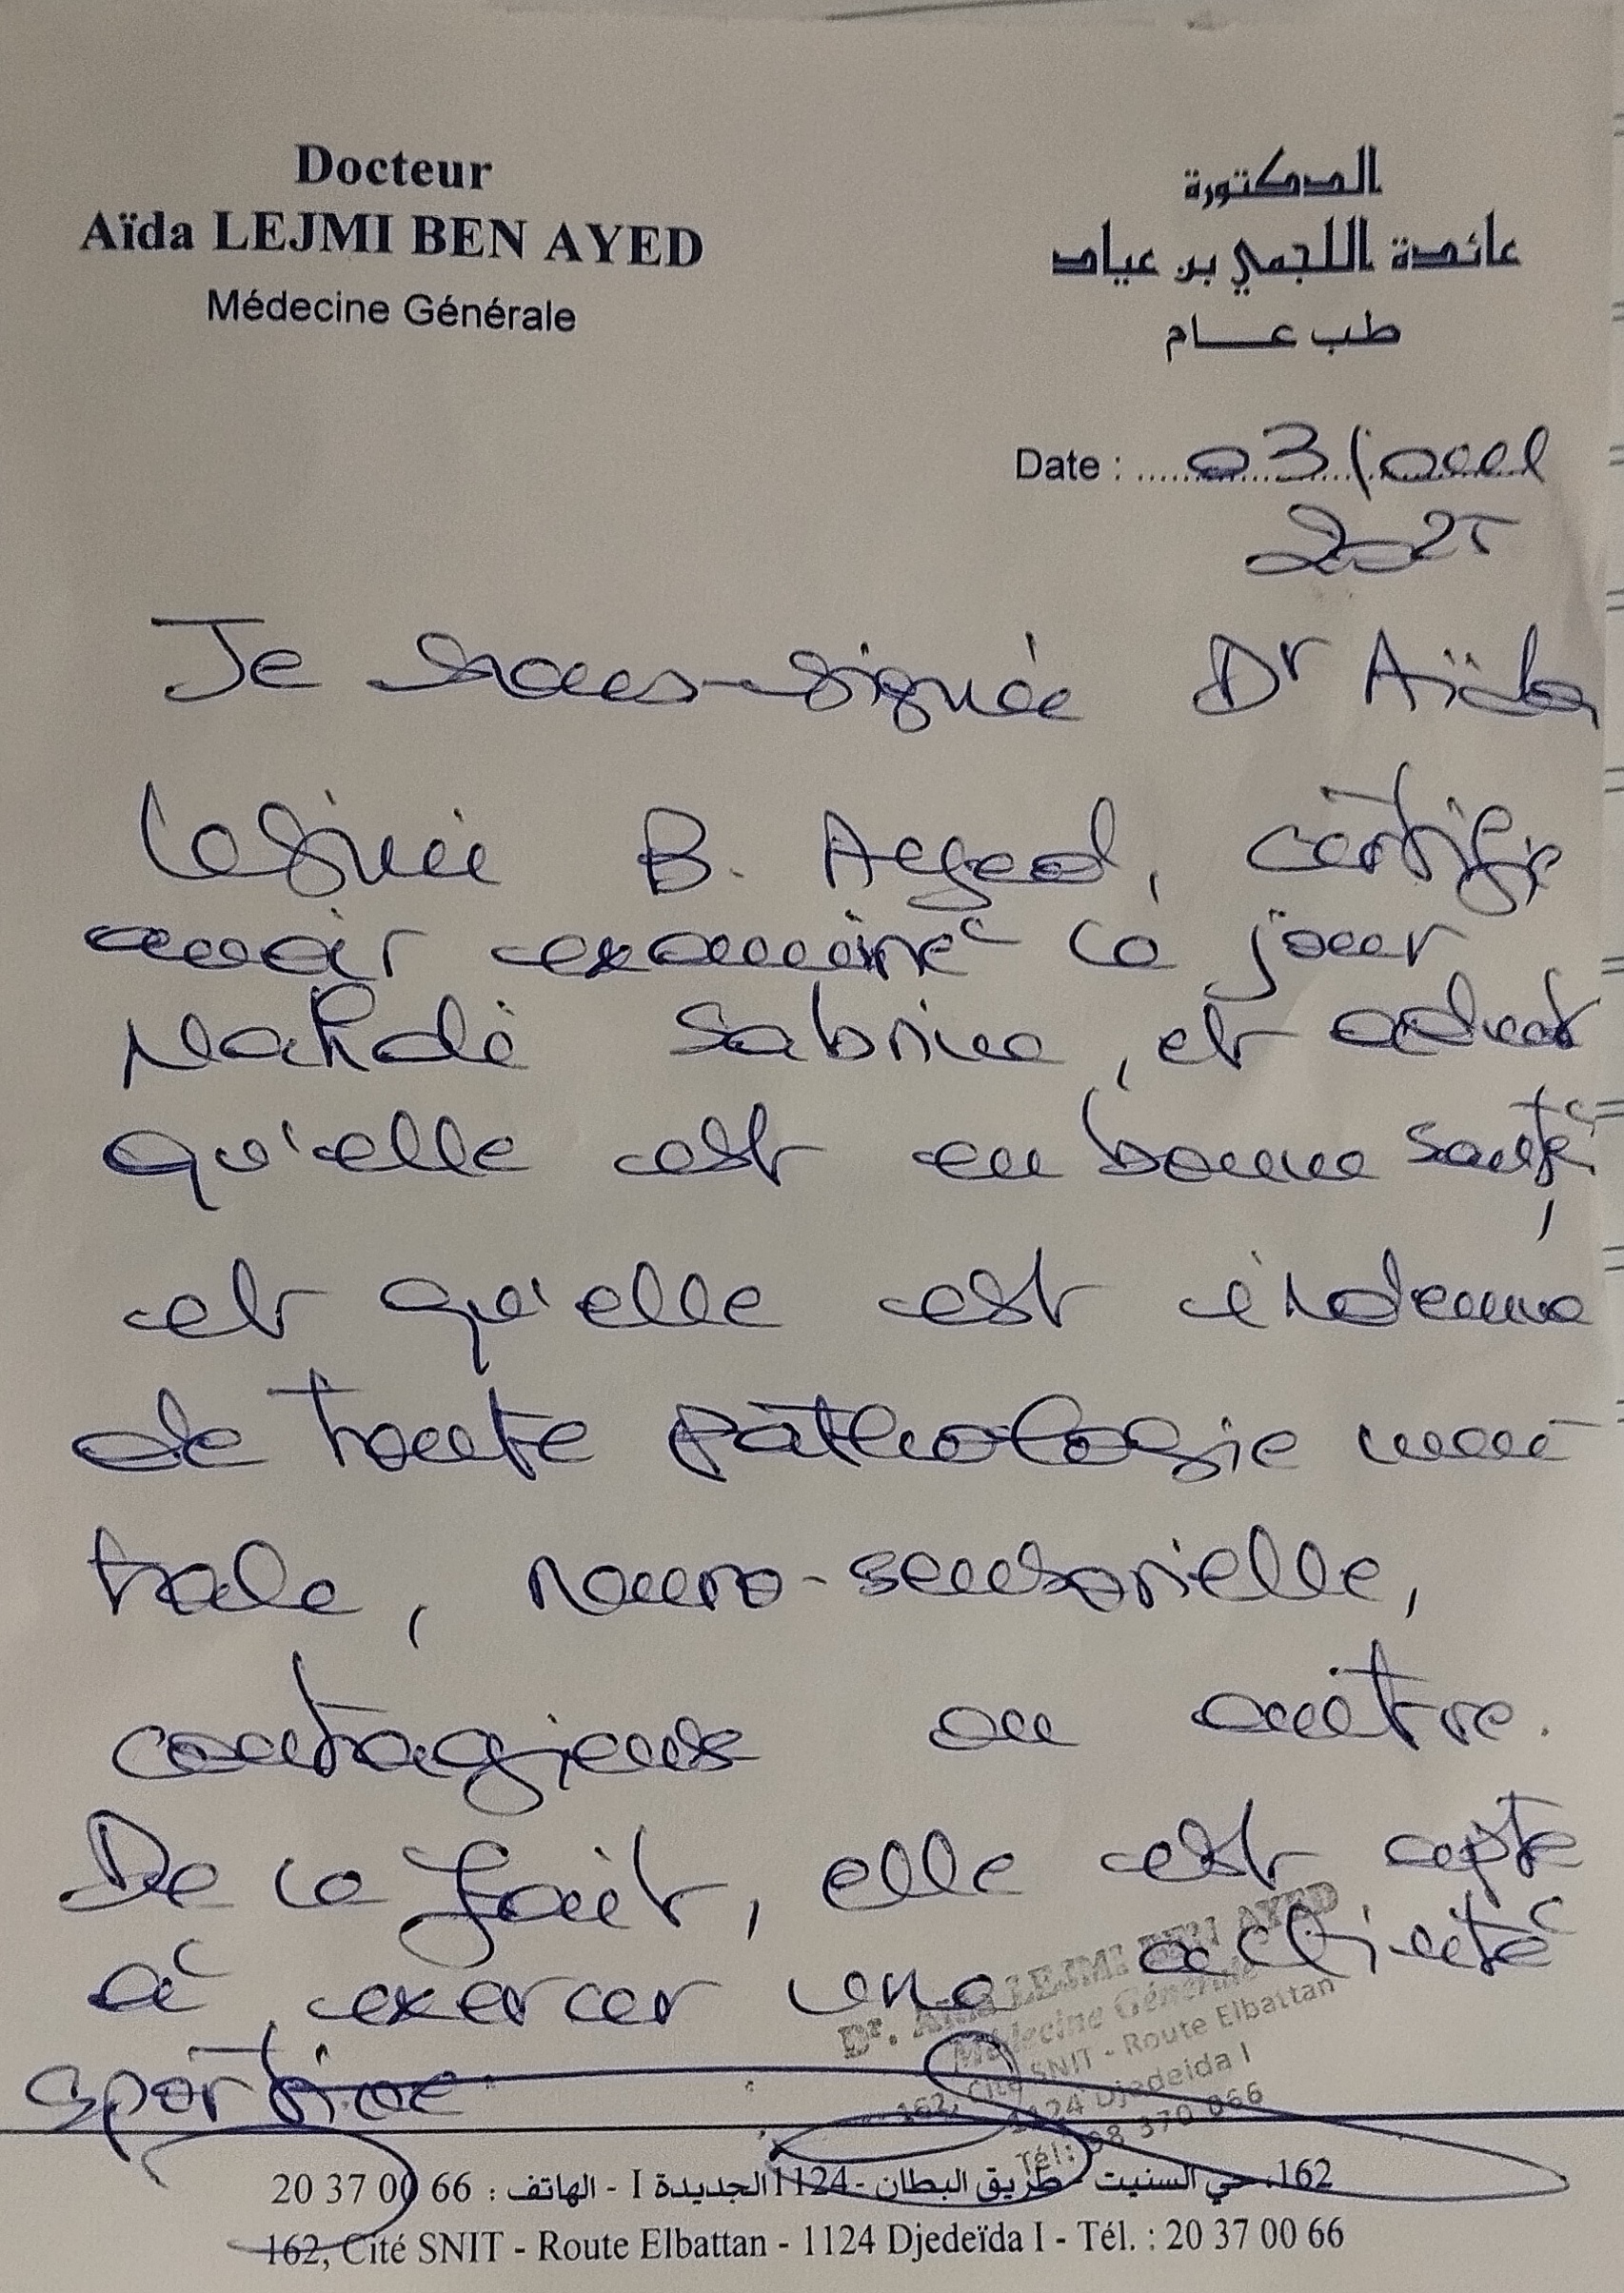 Docteur
Aïda LEJMI BEN AYED
Médecine Générale
الدكتورة
عائدة اللجمي بن عياد
طب عــام
Date : 03/
2025
Je sous-signée Dr Aïda
B. Ayed, certifie
avoir examiné ce jour
Sabrine, et
qu'elle est en bonne santé,
et qu'elle est indemne
de toute pathologie men
tale, neuro-sensorielle,
contagieuse ou autre.
De ce fait, elle est apte
à exercer une activité
sportive
Dr. Aïda LEJMI BEN AYED
Médecine Générale
162, Cité SNIT - Route Elbattan
1124 Djedeida I
Tél: 98 370 066
162، حي السنيت - طريق البطان - 1124 الجديدة I - الهاتف : 20 37 00 66
162, Cité SNIT - Route Elbattan - 1124 Djedeïda I - Tél. : 20 37 00 66